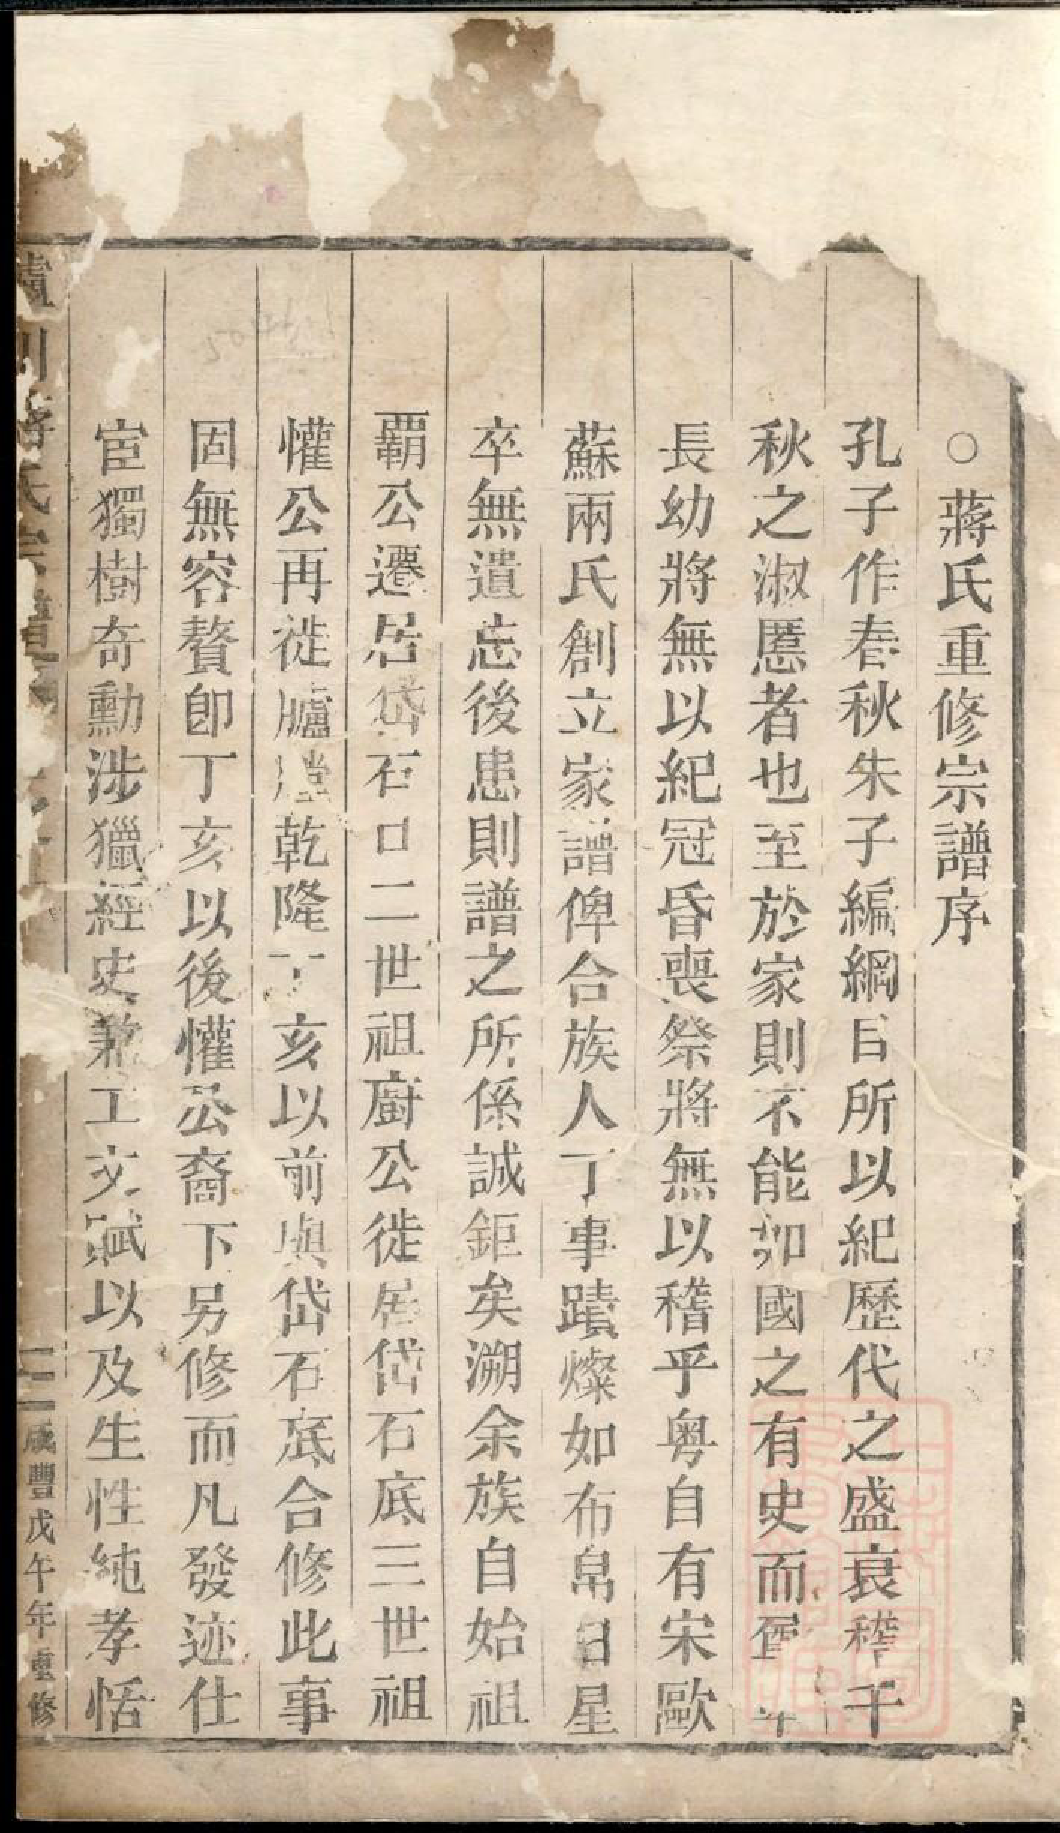 ○蔣氏重修宗譜序
孔子作春秋朱子編綱目所以紀歷代之盛衰稽千
秋之淑慝者也至於家則不能如國之有史而尊
長幼將無以紀冠昏喪祭將無以稽乎粵自有宋歐
蘇兩氏創立家譜俾合族人丁事蹟燦如布帛日星
卒無遺忘後患則譜之所係誠鉅矣溯余族自始祖
覇公遷居岱石口二世祖廚公徙居岱石底三世祖
懽公再徙臚澧乾隆丁亥以前與岱石底合修此事
固無容贅卽丁亥以後懽公裔下另修而凡發迹仕
宦獨樹奇勳涉獵經史兼工文賦以及生性純孝恬
蔣氏宗譜
二 咸豐戊午年重修